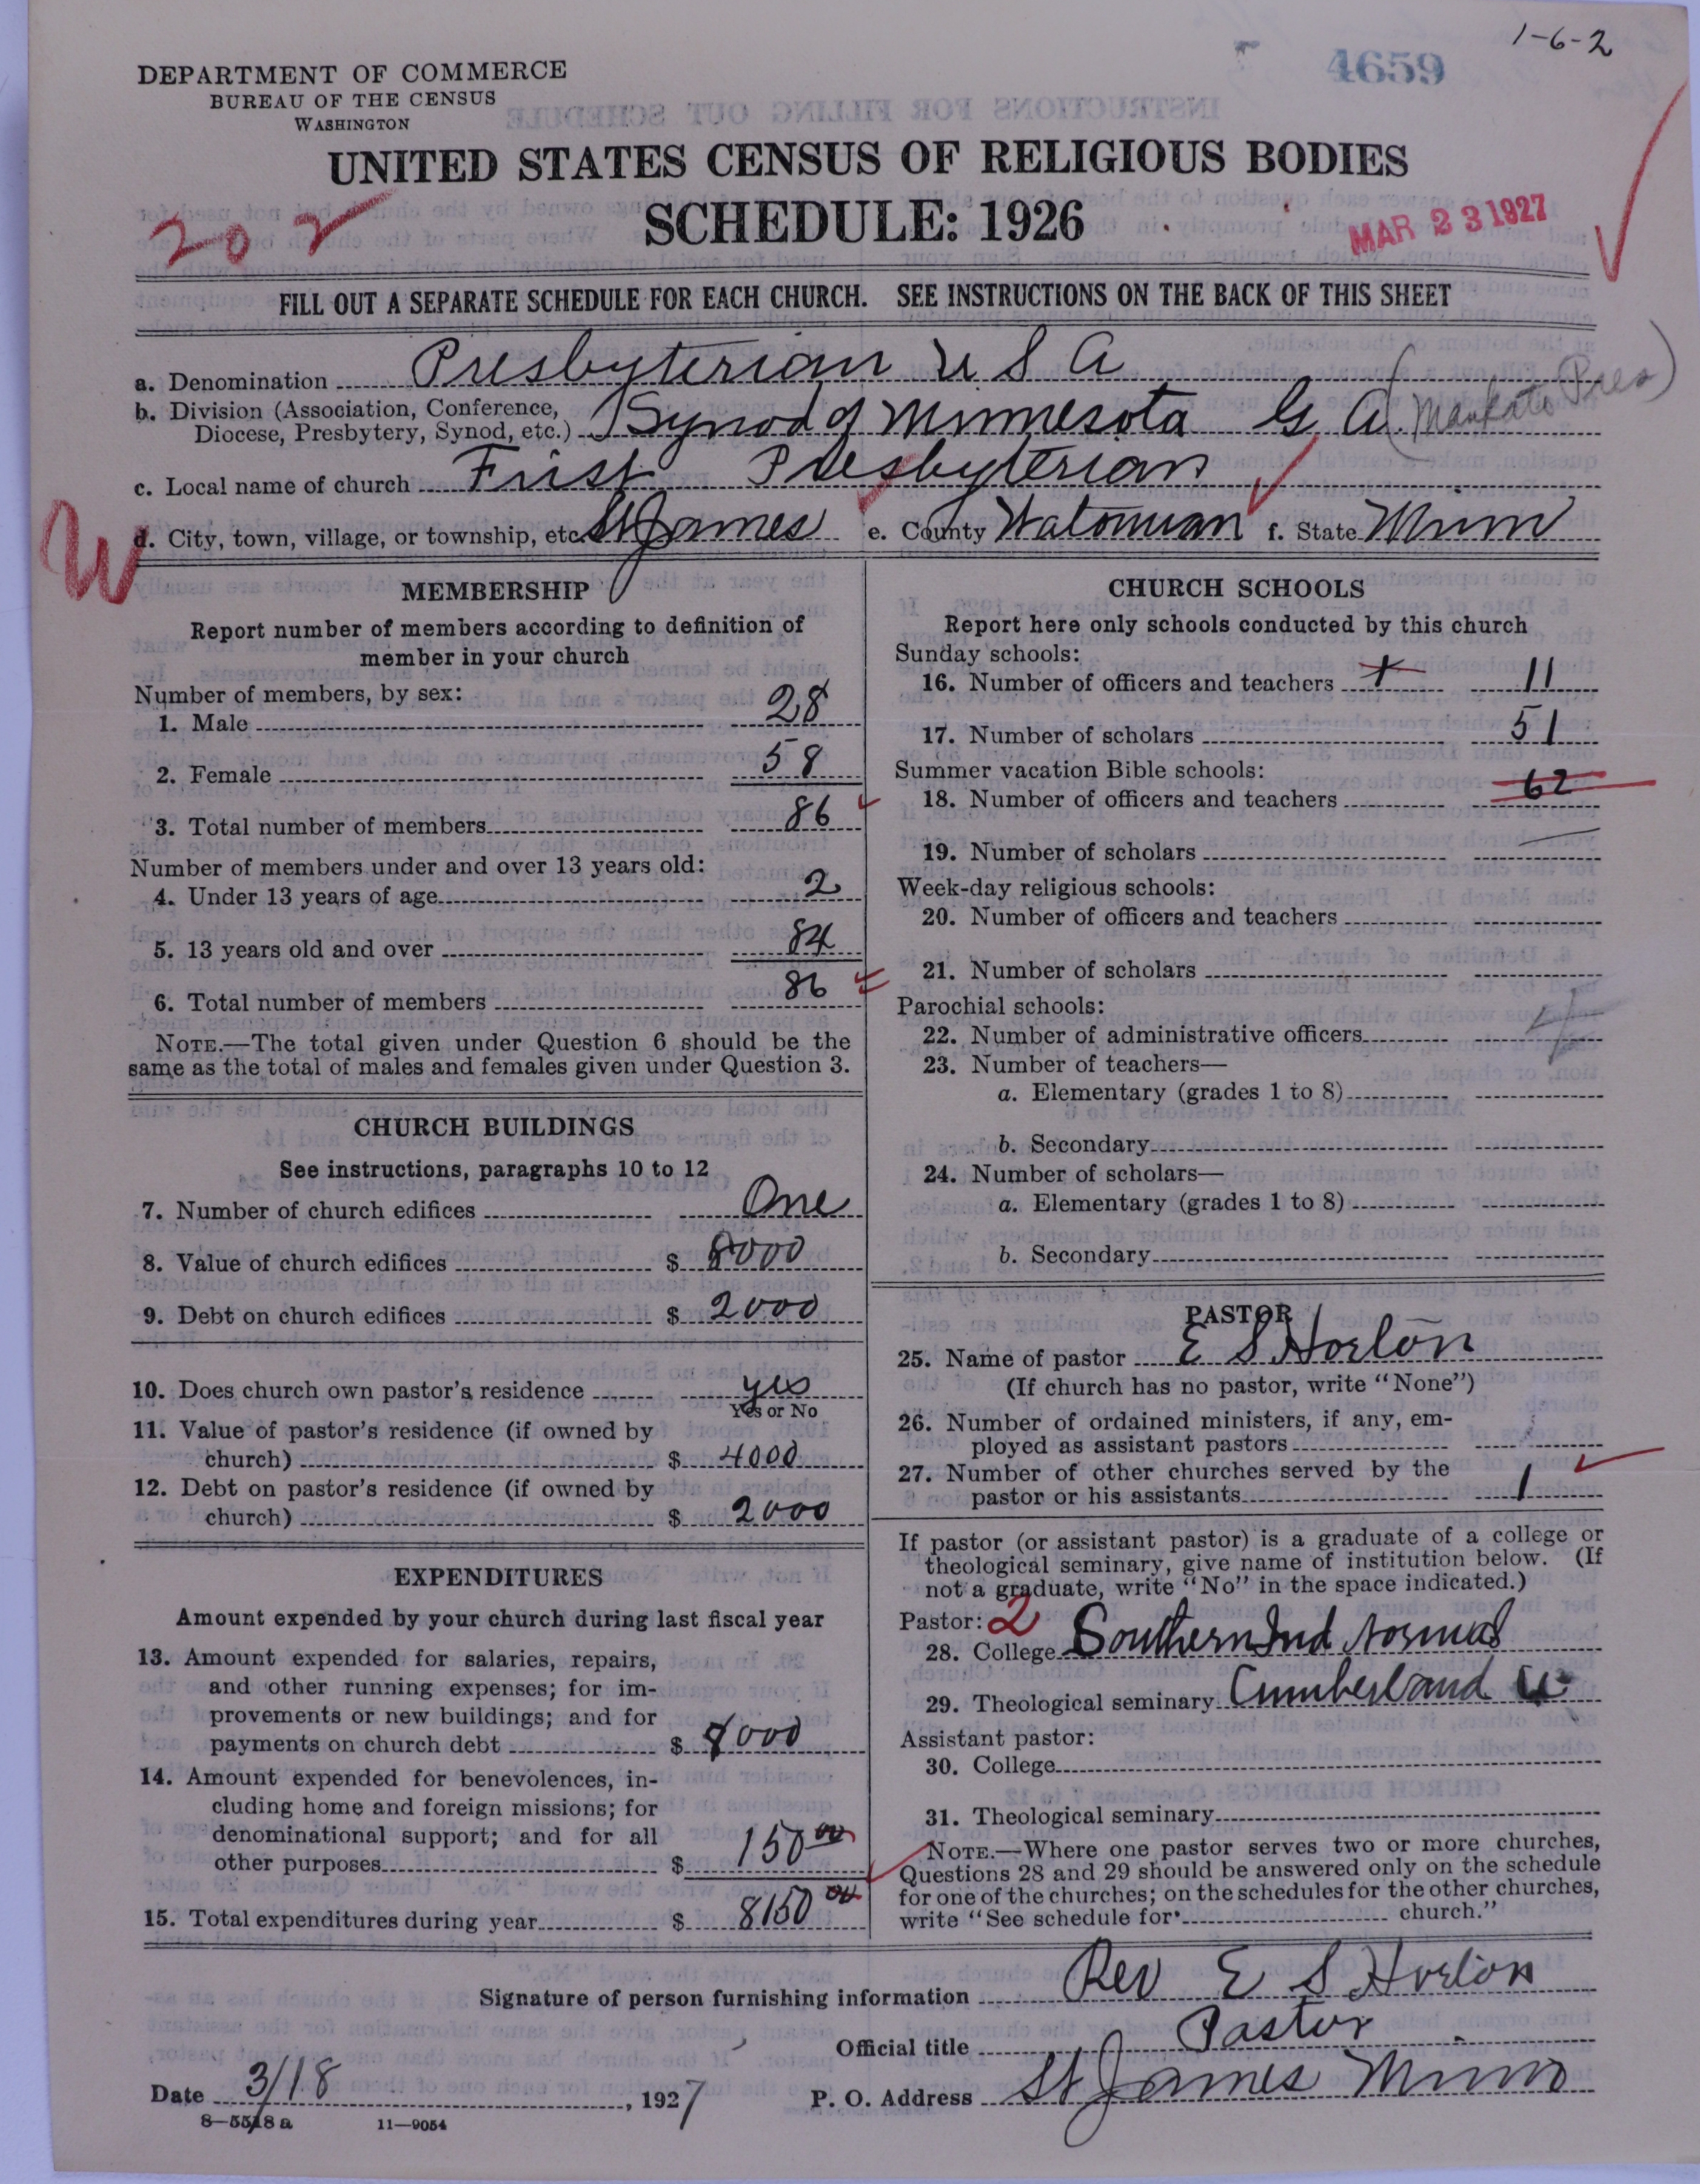 1-6-2
4659
DEPARTMENT OF COMMERCE
BUREAU OF THE CENSUS
WASHINGTON
UNITED STATES CENSUS OF RELIGIOUS BODIES
202
SCHEDULE: 1926
MAR 23 1927
FILL OUT A SEPARATE SCHEDULE FOR EACH CHURCH. SEE INSTRUCTIONS ON THE BACK OF THIS SHEET
a. Denomination Presbyterian U S A
b. Division (Association, Conference, Diocese, Presbytery, Synod, etc.) Synod of Minnesota G. A. (Mankato Pres)
c. Local name of church First Presbyterian
W
d. City, town, village, or township, etc St James e. County Watonwan f. State Minn
MEMBERSHIP
Report number of members according to definition of
member in your church
Number of members, by sex:
1. Male 28
2. Female 58
3. Total number of members 86
Number of members under and over 13 years old:
4. Under 13 years of age 2
5. 13 years old and over 84
6. Total number of members 86
NOTE.—The total given under Question 6 should be the
same as the total of males and females given under Question 3.
CHURCH BUILDINGS
See instructions, paragraphs 10 to 12
7. Number of church edifices One
8. Value of church edifices $ 8000
9. Debt on church edifices $ 2000
10. Does church own pastor's residence yes
Yes or No
11. Value of pastor's residence (if owned by
church) $ 4000
12. Debt on pastor's residence (if owned by
church) $ 2000
EXPENDITURES
Amount expended by your church during last fiscal year
13. Amount expended for salaries, repairs,
and other running expenses; for im-
provements or new buildings; and for
payments on church debt $ 8000
14. Amount expended for benevolences, in-
cluding home and foreign missions; for
denominational support; and for all
other purposes $ 150 00
15. Total expenditures during year $ 8150 00
CHURCH SCHOOLS
Report here only schools conducted by this church
Sunday schools:
16. Number of officers and teachers 11
17. Number of scholars 51
Summer vacation Bible schools:
18. Number of officers and teachers 62
19. Number of scholars
Week-day religious schools:
20. Number of officers and teachers
21. Number of scholars
Parochial schools:
22. Number of administrative officers
23. Number of teachers—
a. Elementary (grades 1 to 8)
b. Secondary
24. Number of scholars—
a. Elementary (grades 1 to 8)
b. Secondary
PASTOR
25. Name of pastor E S Horton
(If church has no pastor, write "None")
26. Number of ordained ministers, if any, em-
ployed as assistant pastors
27. Number of other churches served by the
pastor or his assistants 1
If pastor (or assistant pastor) is a graduate of a college or
theological seminary, give name of institution below. (If
not a graduate, write "No" in the space indicated.)
Pastor: 2
28. College Southern Ind Normal
29. Theological seminary Cumberland
Assistant pastor:
30. College
31. Theological seminary
NOTE.—Where one pastor serves two or more churches,
Questions 28 and 29 should be answered only on the schedule
for one of the churches; on the schedules for the other churches,
write "See schedule for church."
Signature of person furnishing information Rev E S Horton
Official title Pastor
Date 3/18, 1927 P. O. Address St James Minn
8—5518 a 11—9054